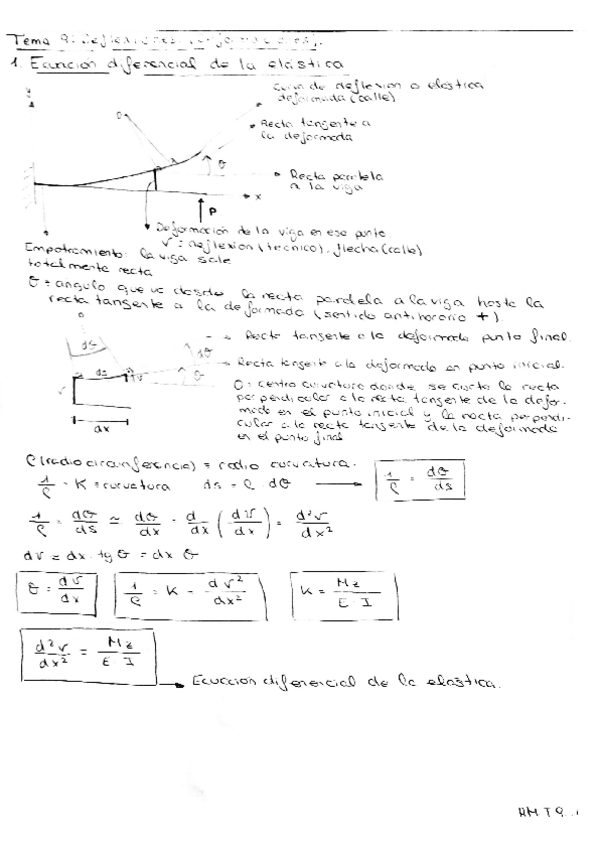 Tema 9: Deflexiones (deformaciones).
1. Ecuación diferencial de la elástica
Curva de deflexion o elástica
deformada (calle)
Recta tangente a
la deformada
Recta paralela
a la viga
y
O
θ
x
P
Deformación de la viga en ese punto.
v: deflexion (tecnico), flecha (calle)
Empotramiento: la viga sale
totalmente recta
θ = angulo que va desde la recta paralela a la viga hasta la
recta tangente a la deformada (sentido antihorario +)
O
dθ
Recta tangente a la deformada punto final.
ds
dθ
Recta tangente a la deformada en punto inicial.
θ
θ
O: centro curvatura donde se corta la recta
perpendicular a la recta tangente de la defor-
mada en el punto inicial y la recta perpendi-
cular a la recta tangente de la deformada
en el punto final
v
dv
dx
ρ (radio circunferencia) = radio curvatura.
1/ρ = K = curvatura ds = ρ · dθ → 1/ρ = dθ/ds
1/ρ = dθ/ds ≃ dθ/dx = d/dx (dv/dx) = d²v/dx²
dv = dx · tg θ = dx θ
θ = dv/dx 1/ρ = K = dv²/dx² K = Mz/E·I
d²v/dx² = Mz/E·I
Ecuación diferencial de la elástica.
RM T9